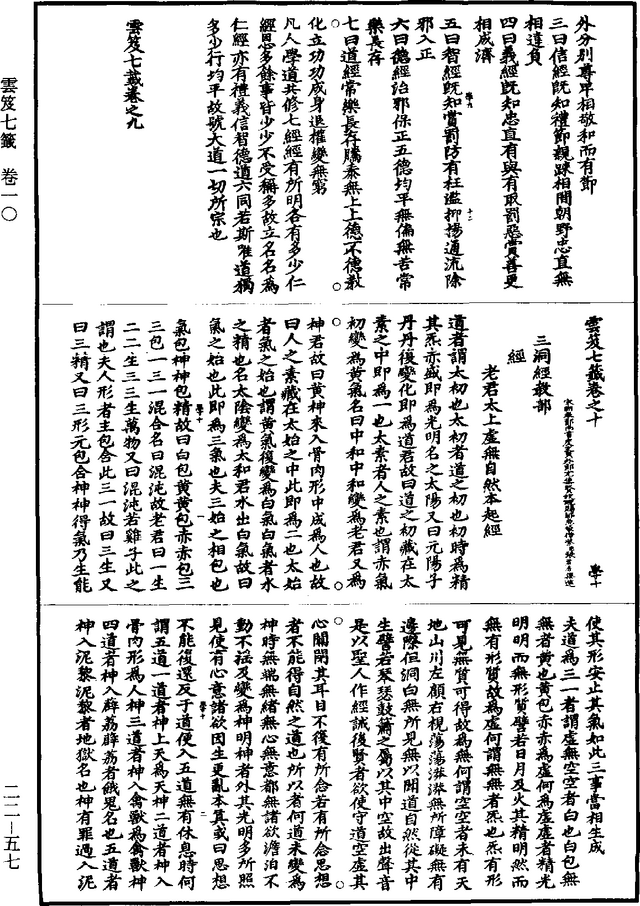 雲笈七籤 卷一〇
二二—五七
外分別尊卑相敬和而有節
三曰信經既知禮節親踈相間朝野忠直無
相違負
四曰義經既知忠直有與有取罰惡賞善更
相成濟
五曰智經既知賞罰防有枉濫抑揚通流除
邪入正
六曰德經治邪保正五德均平無偏無苦常
樂長存
七曰道經常樂長存騰泰無上上德不德教
化立功功成身退權變無窮
凡人學道共修七經經有所明各有多少仁
經思多餘事皆少少不受稱多故立名名爲
仁經亦有禮義信智德道六同若斯唯道獨
多少行均平故號大道一切所宗也
雲笈七籤卷之九
雲笈七籤卷之十
學十
三洞經教部
經
老君太上虛無自然本起經
道者謂太初也太初者道之初也初時爲精
其炁赤盛即爲光明名之太陽又曰元陽子
丹丹復變化即爲道君故曰道之初藏在太
素之中即爲一也太素者人之素也謂赤氣
初變爲黃氣名曰中和中和變爲老君又爲
神君故曰黃神來入骨肉形中成爲人也故
曰人之素藏在太始之中此即爲二也太始
者氣之始也謂黃氣復變爲白氣白氣者水
之精也名太陰變爲太和君水出白氣故曰
氣之始也此即爲三氣也夫三始之相包也
氣包神神包精故曰白包黃黃包赤赤包三
三包一三一混合名曰混沌故老君曰一生
二二生三三生萬物又曰混沌若雞子此之
謂也夫人形者主包含此三一故曰三生又
曰三精又曰三形元包含神神得氣乃生能
使其形安止其氣如此三事當相生成
夫道爲三一者謂虛無空空者白也白包無
無者黃也黃包赤赤爲虛何爲虛虛者精光
明明而無形質譬若日月及火其精明然而
無有形質故爲虛何謂無無者炁也炁有形
可見無質可得故爲無何謂空空者未有天
地山川左顧右視蕩蕩漭漭無所障礙無有
邊際但洞白無所見無以聞道自然從其中
生譬若琴瑟鼓簫之屬以其中空故出聲音
是以聖人作經誡後賢者欲使守道空虛其
心關閉其耳目不復有所念若有所念思想
者不能得自然之道也所以者何道未變爲
神時無端無緒無心無意都無諸欲澹泊不
動不搖及變爲神明神者外其光明多所照
見使有心意諸欲因生更亂本真或曰思想
不能復還反于道便入五道無有休息時何
謂五道一道者神上天爲天神二道者神入
骨肉形爲人神三道者神入禽獸爲禽獸神
四道者神入薜荔薜荔者餓鬼名也五道者
神入泥黎泥黎者地獄名也神有罪過入泥